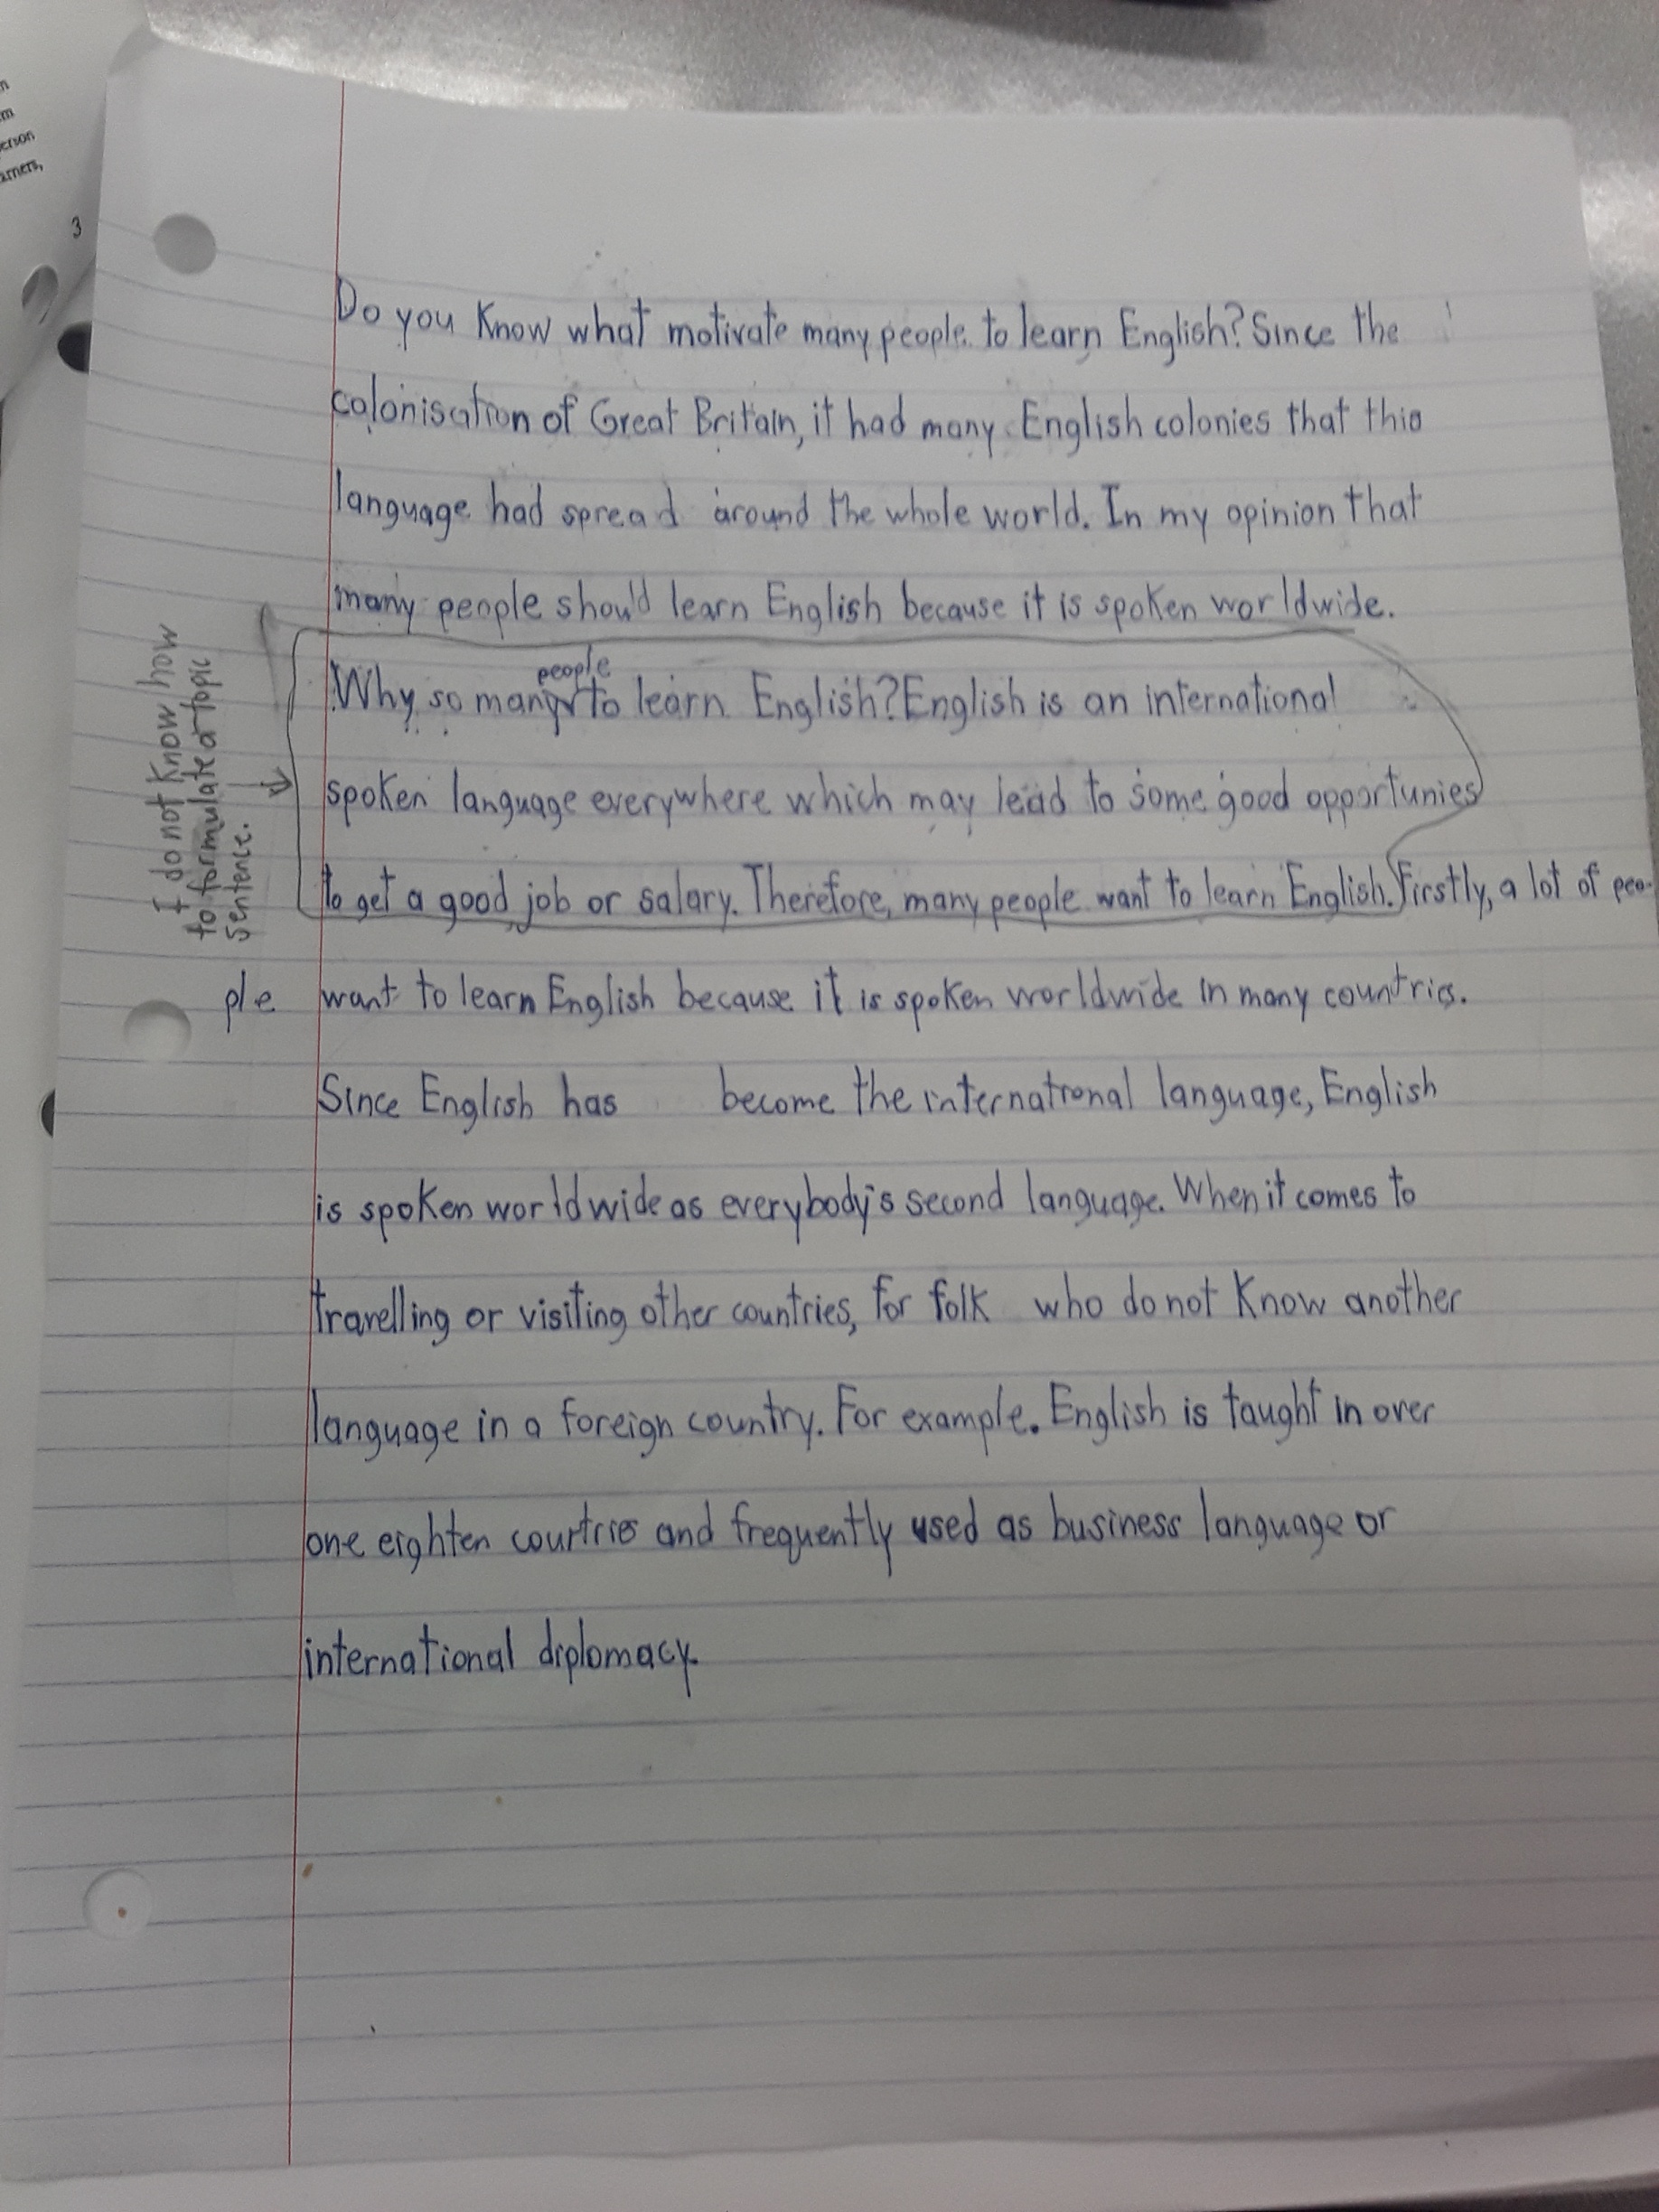 m
erson
arners,
3
Do you Know what motivate many people to learn English? Since the
colonisation of Great Britain, it had many English colonies that this
language had spread around the whole world. In my opinion that
many people should learn English because it is spoken worldwide.
I do not know how
to formulate a topic
sentence.
people
Why so many to learn English? English is an international
spoken language everywhere which may lead to some good opportunies
to get a good job or salary. Therefore, many people want to learn English. Firstly, a lot of peo-
ple want to learn English because it is spoken worldwide in many countries.
Since English has become the international language, English
is spoken worldwide as everybody's second language. When it comes to
travelling or visiting other countries, for folk who do not Know another
language in a foreign country. For example. English is taught in over
one eighten courtries and frequently used as business language or
international diplomacy.